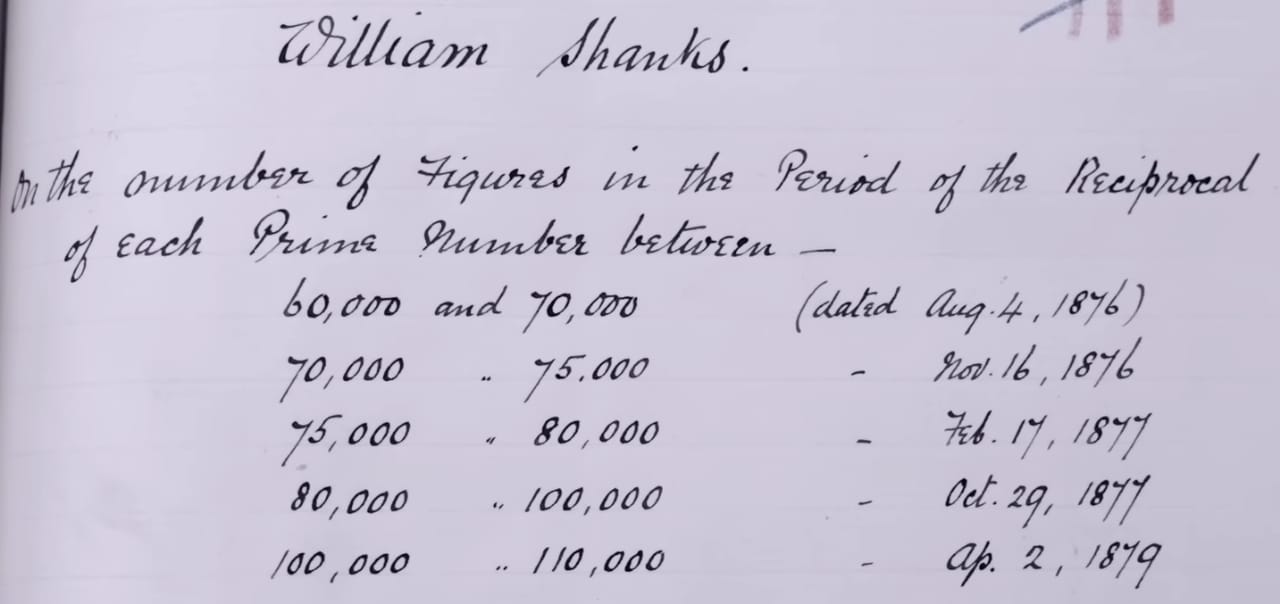 William Shanks.
On the number of Figures in the Period of the Reciprocal
of each Prime Number between —
60,000 and 70,000 (dated Aug. 4, 1876)
70,000 „ 75.000 - Nov. 16, 1876
75,000 „ 80,000 - Feb. 17, 1877
80,000 „ 100,000 - Oct. 29, 1877
100,000 „ 110,000 - Ap. 2, 1879